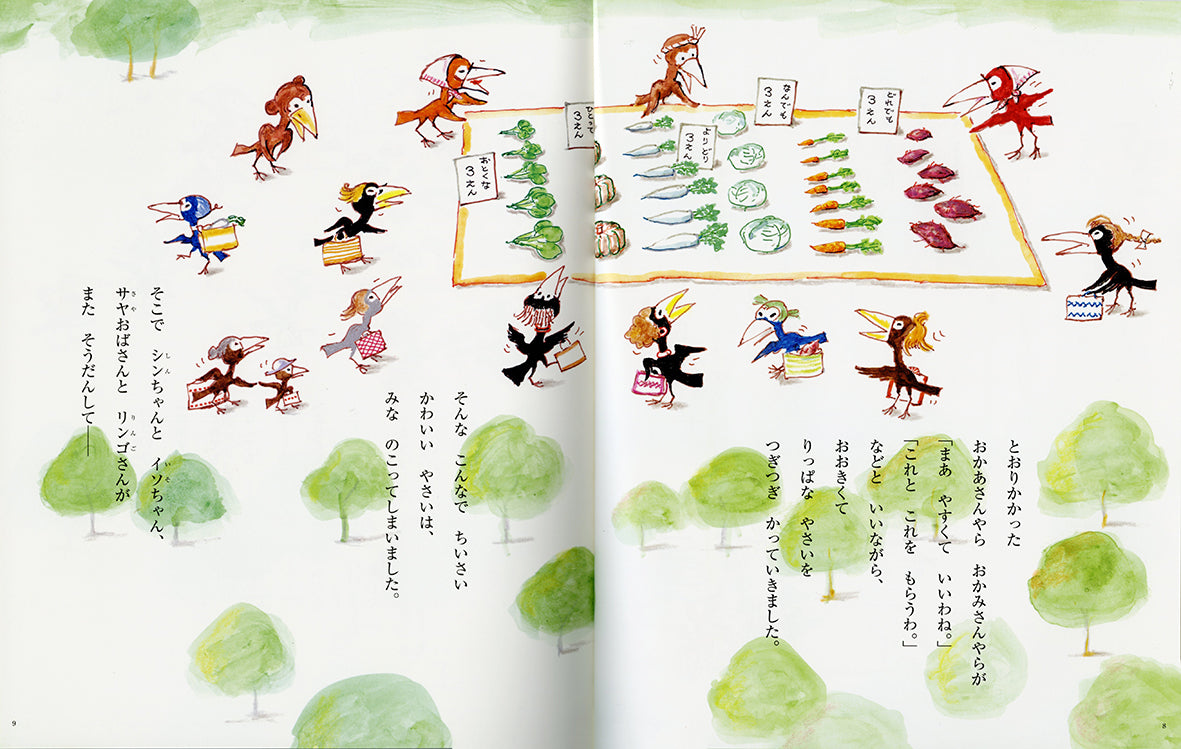 どれでも
3えん
なんでも
3えん
よりどり
3えん
ひとつ
3えん
おとくな
3えん
とおりかかった
おかあさんやら　おかみさんやらが
「まあ　やすくて　いいわね。」
「これと　これを　もらうわ。」
などと　いいながら、
おおきくて
りっぱな　やさいを
つぎつぎ　かっていきました。
そんな　こんなで　ちいさい
かわいい　やさいは、
みな　のこってしまいました。
そこで　シンちゃんと　イソちゃん、
しん
いそ
サヤおばさんと　リンゴさんが
さや
りんご
また　そうだんして――
8
9